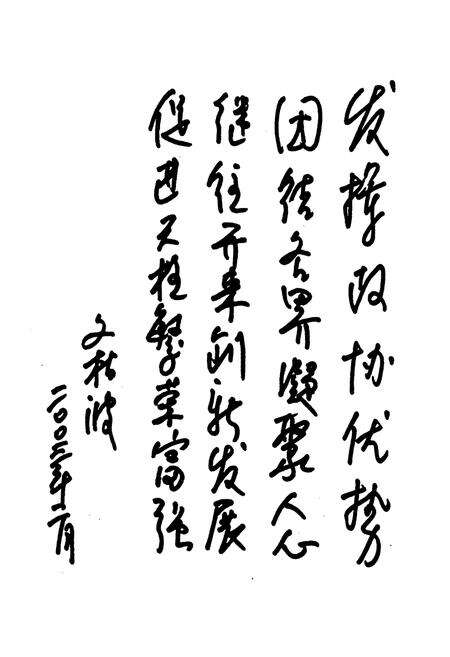 发挥政协优势
团结各界凝聚人心
继往开来创新发展
促进天柱繁荣富强
文 波
二〇〇三年 月